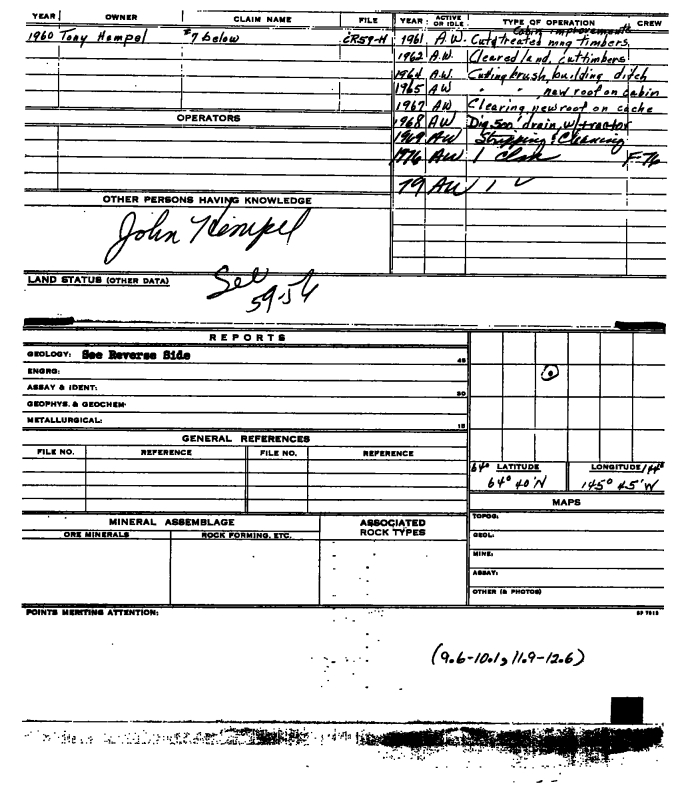 YEAR OWNER CLAIM NAME FILE YEAR ACTIVE OR IDLE TYPE OF OPERATION CREW
1960 Tony Hempel #7 below CR59-H 1961 A.W. Cut & treated mng timbers, Cabin improvements
1962 A.W. Cleared land, cut timbers
1964 A.W. Cutting brush, building ditch
1965 AW " " , new roof on cabin
1967 A.W. Clearing, new roof on cache
OPERATORS
1968 AW Dig 500' drain, w/tractor
1969 AW Stripping & Cleaning
1976 AW 1 Claim F-76
79 AW 1 ✓
OTHER PERSONS HAVING KNOWLEDGE
John Hempel
LAND STATUS (OTHER DATA)
See
59-54
REPORTS
GEOLOGY: See Reverse Side 45
ENGRG:
ASSAY & IDENT: 30
GEOPHYS. & GEOCHEM:
METALLURGICAL: 15
GENERAL REFERENCES
FILE NO. REFERENCE FILE NO. REFERENCE
64° LATITUDE LONGITUDE
64° 40'N 145° 45'W
MAPS
MINERAL ASSEMBLAGE ASSOCIATED ROCK TYPES
ORE MINERALS ROCK FORMING, ETC.
TOPOG:
GEOL:
MINE:
ASSAY:
OTHER (& PHOTOS)
POINTS MERITING ATTENTION:
(9.6-10.1, 11.9-12.6)